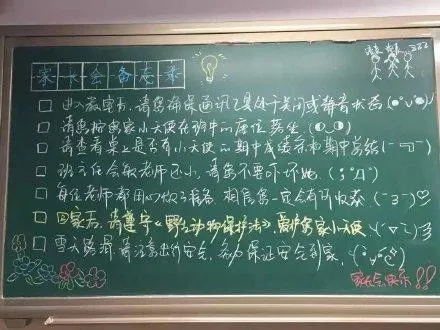 家长会备忘录
□ 进入教室前,请您确保通讯工具处于关闭或静音状态
□ 请您按您家小天使在班中的座位落坐.
□ 请查看桌上是否有小天使的期中成绩条和期中总结
□ 班主任会敏老师还小,请您不要吓坏她.
□ 每位老师都用心做了准备,相信您一定会有所收获.
□ 回家后,请遵守《野生动物保护法》爱护您家小天使
□ 雪天路滑,请注意出行安全,务必保证安全到家.
家长会快乐!!